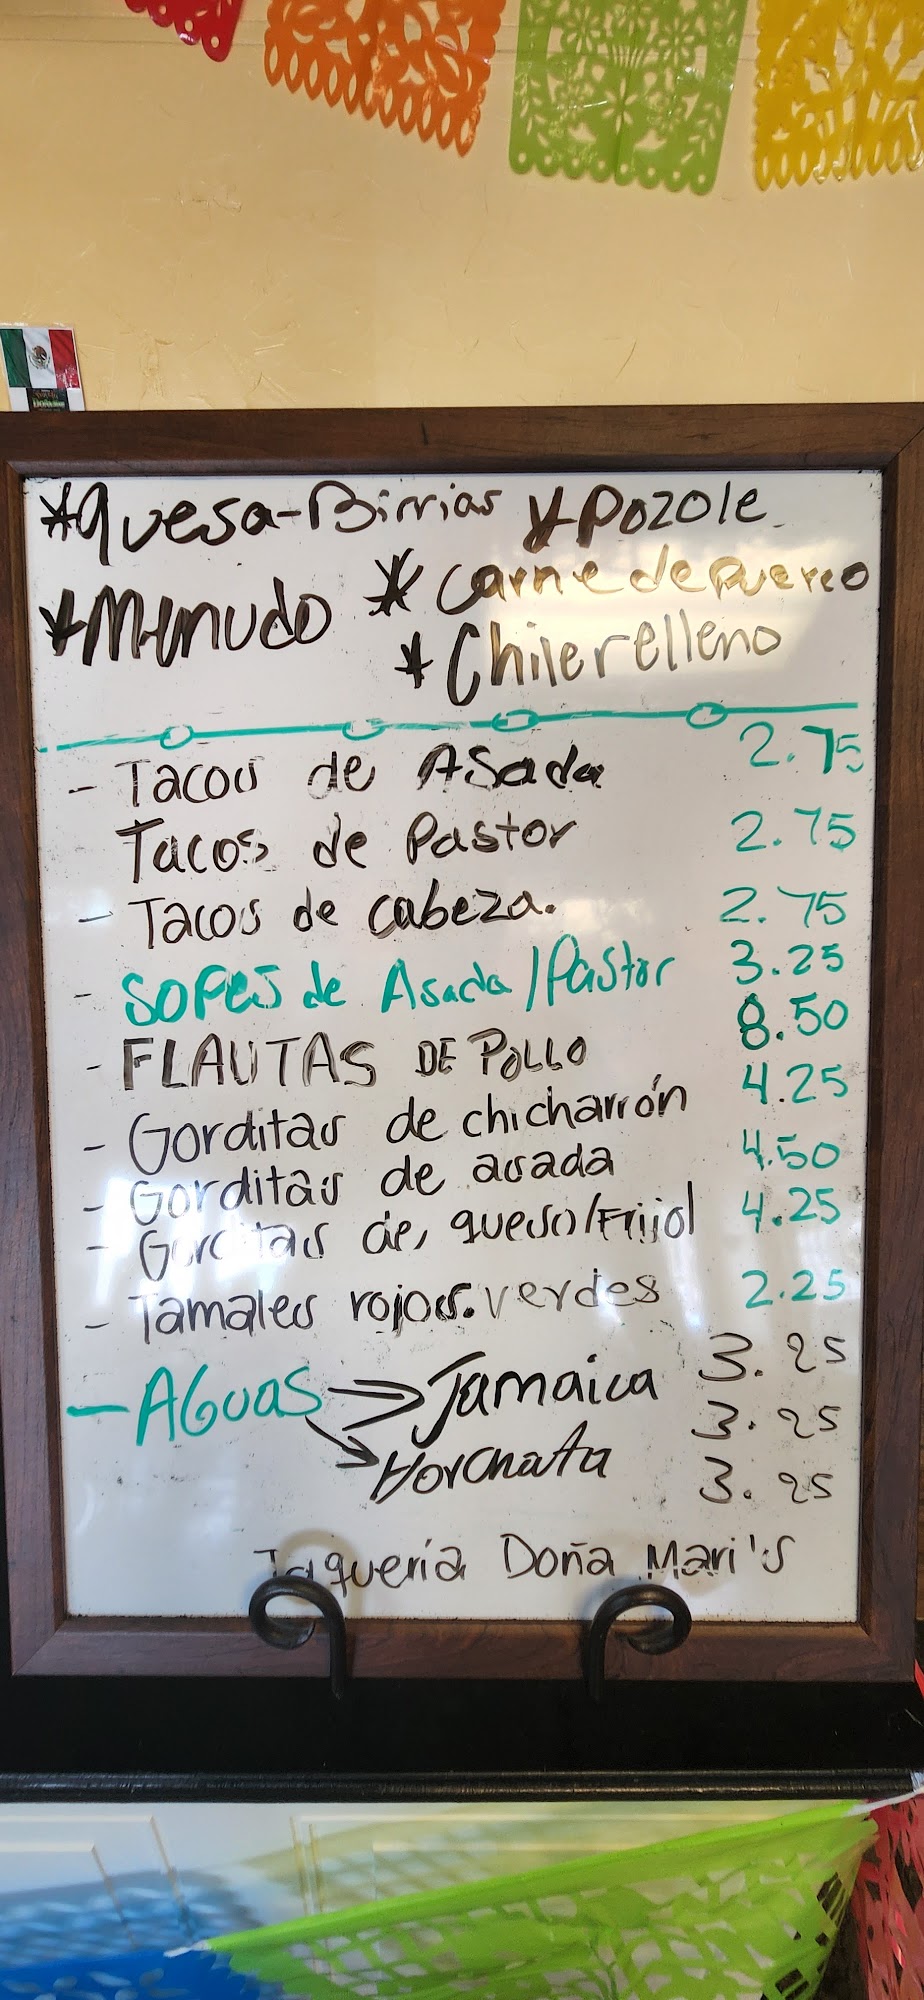 *quesa-Birrias *Pozole
*Menudo * Carne de Puerco
* Chile relleno
- Tacos de Asada 2.75
Tacos de Pastor 2.75
- Tacos de cabeza. 2.75
- SOPES de Asada/Pastor 3.25
- FLAUTAS DE POLLO 8.50
- Gorditas de chicharrón 4.25
- Gorditas de asada 4.50
- Gorditas de, queso/Frijol 4.25
- Tamales rojos.verdes 2.25
- AGUAS Jamaica 3.25
3.25
Horchata 3.25
Taquería Doña Mari's